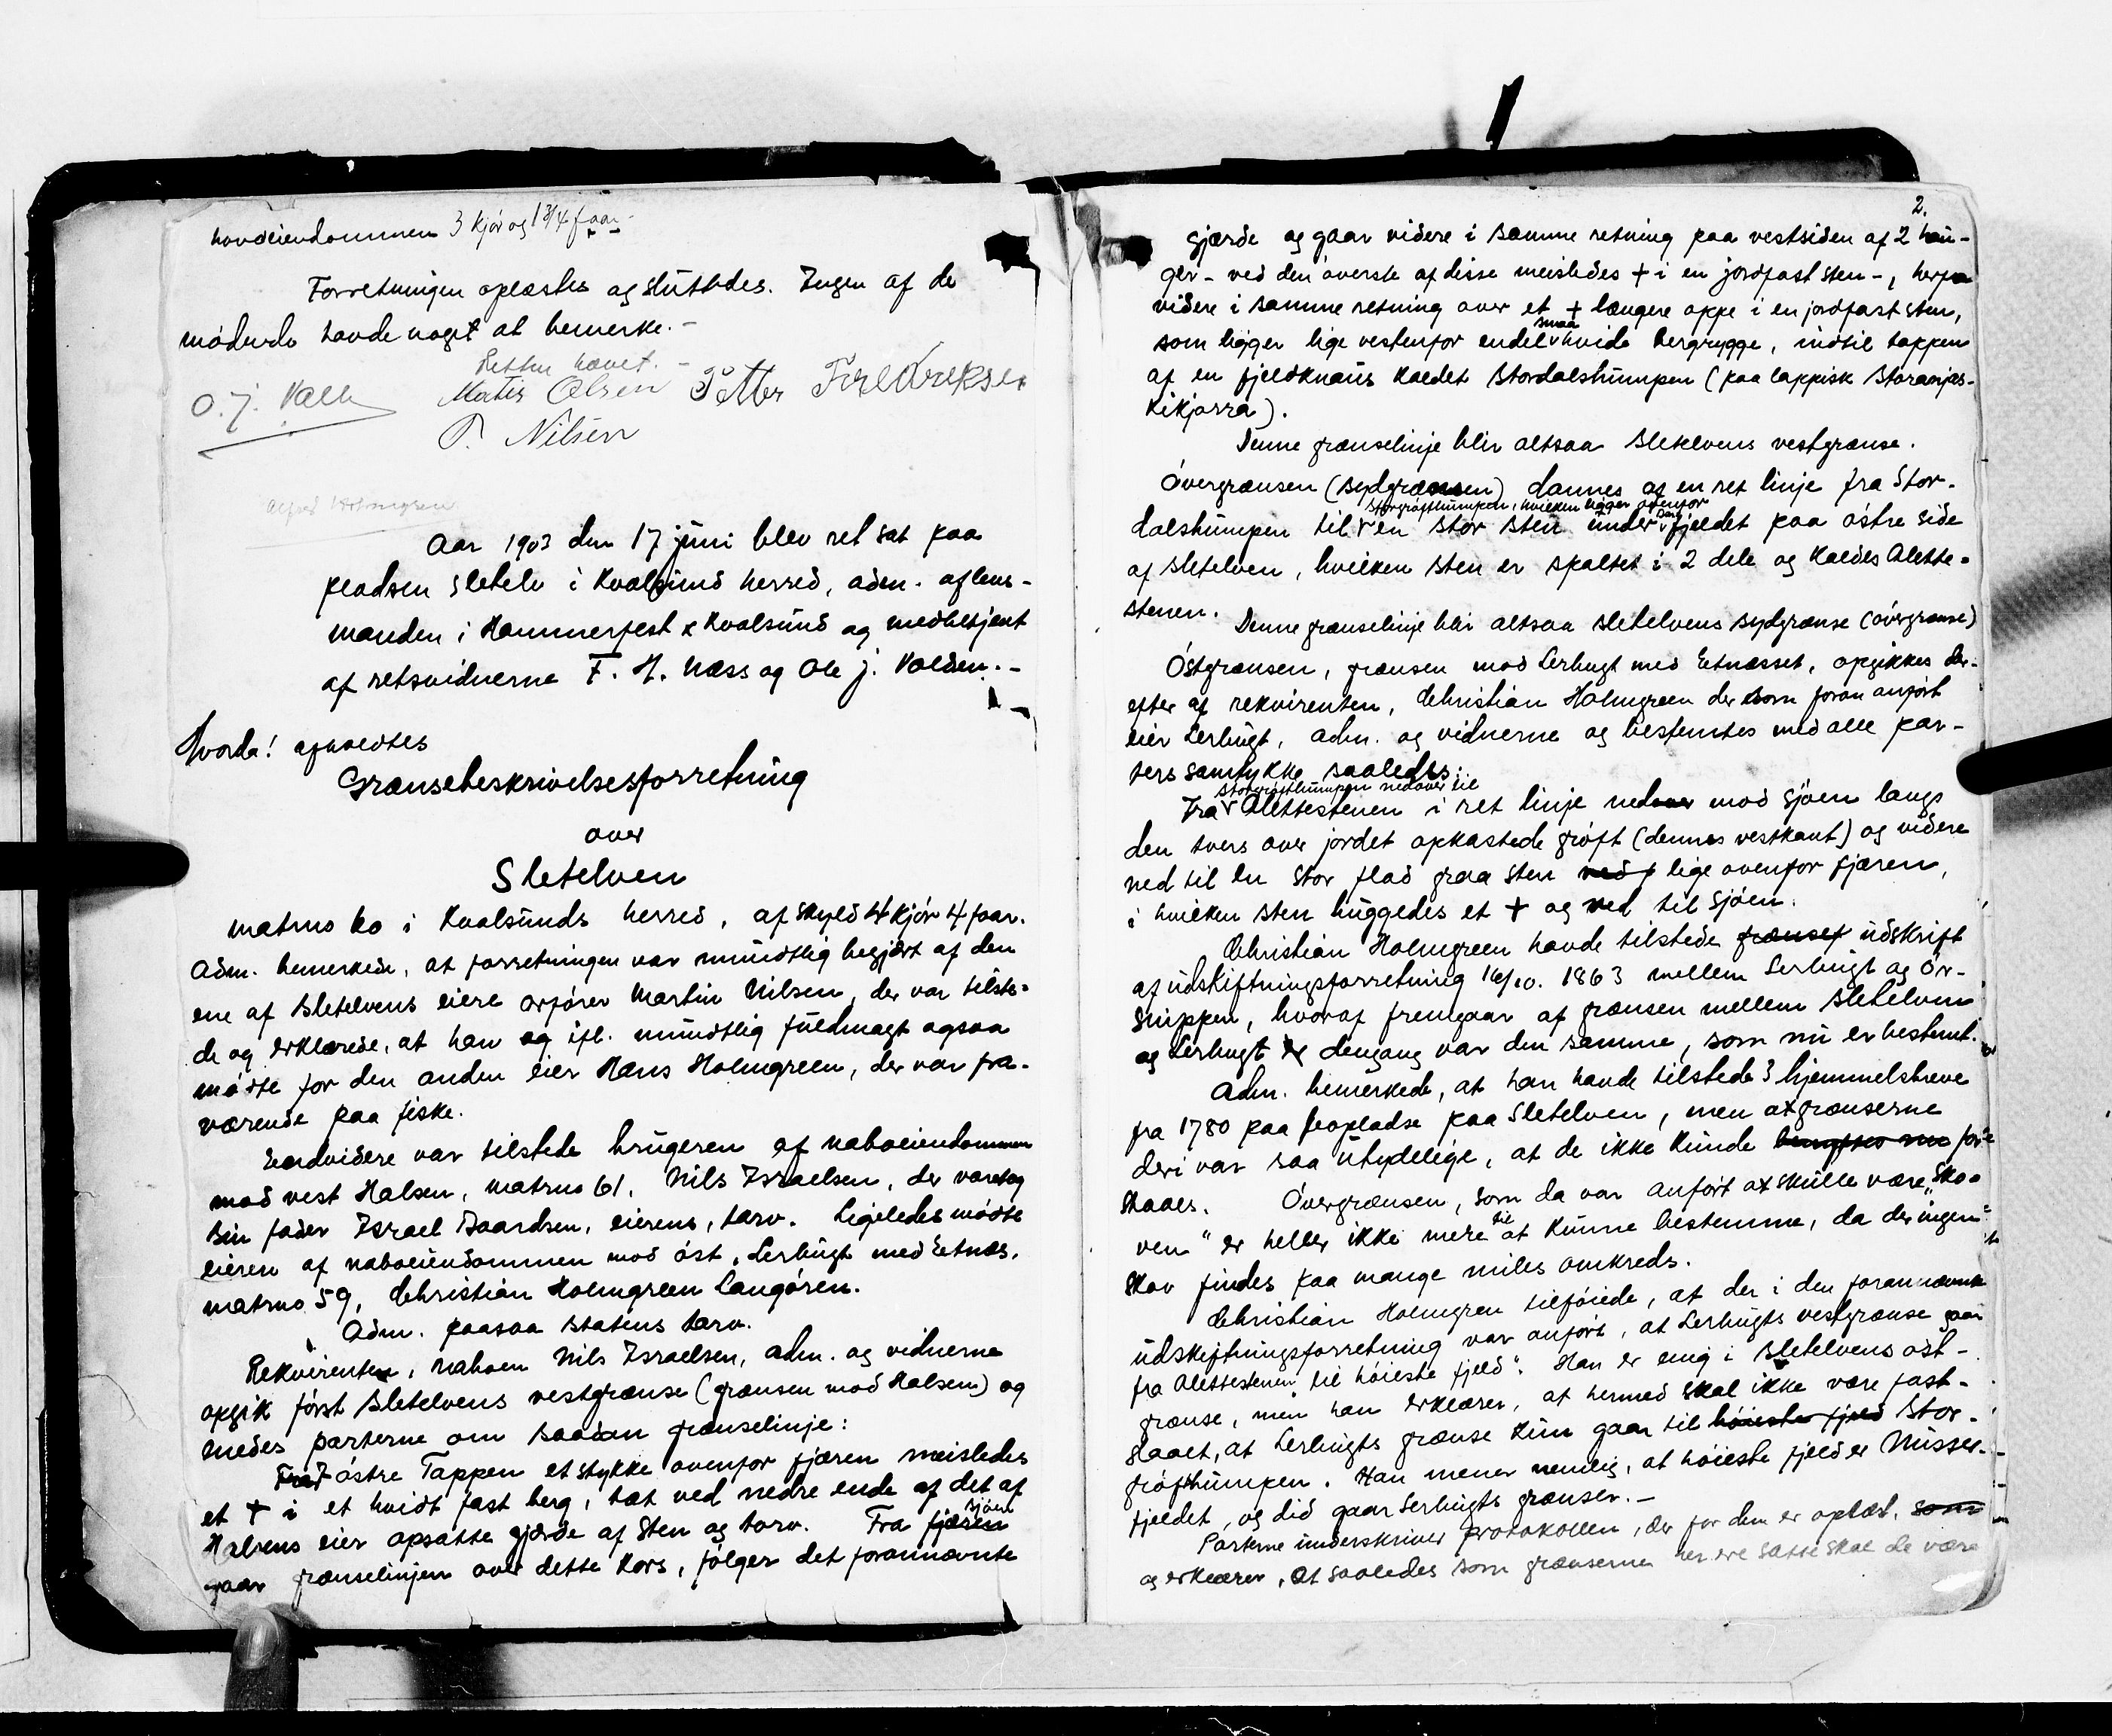 hovedeiendommen 3 kjør og 1 3/4 faar.
Forretningen oplæstes og sluttedes. Ingen af de
mødende havde noget at bemerke. -
Retten hævet. -
O. J. Mortis Olsen Petter Fredreksen
P. Nilsen
Alfred Holmgren
Aar 1903 den 17 juni blev ret sat paa
pladsen Sletelv i Kvalsund herred, adm. af lens-
manden i Hammerfest & Kvalsund og medbetjent
af retsvidnerne F. H. Næss og Ole J. Volden. -
Hvorda! afholdtes
Grænsebeskrivelsesforretning
over
Sletelven
matrno 60 i Kvalsunds herred, af skyld 4 kjør 4 faar.
Adm. bemerkede, at forretningen var mundtlig begjært af den
ene af Sletelvens eiere Martin Nilsen, der var tilste-
de og erklærede, at han og ifl. mundtlig fuldmagt ogsaa
mødte for den anden eier Hans Holmgreen, der var fra-
værende paa fiske.
Endvidere var tilstede brugeren af naboeiendommen
mod vest Halsen, matrno 61, Nils Israelsen, der varetog
sin fader Israel Baardsen, eierens, tarv. Ligeledes mødte
eieren af naboeiendommen mod øst, Lerbugt med Etnæs,
matrno 59, Christian Holmgreen Langøren.
Adm. paasaa statens tarv.
Rekvirenten, naboen Nils Israelsen, adm. og vidnerne
opgik først Sletelvens vestgrænse (grænsen mod Halsen) og
enedes parterne om saadan grænselinje:
Fra østre Tappen et stykke ovenfor fjæren meisledes
et + i et hvidt fast berg, tæt ved nedre ende af det af
Halsens eier opsatte gjærde af sten og torv. Fra fjæren sjøen
gaar grænselinjen over dette kors, følger det forannævnte
2.
gjærde og gaar videre i samme retning paa vestsiden af 2 hau-
ger - ved den øverste af disse meisledes + i en jordfast sten -, herfra
videre i samme retning over et + længere oppe i en jordfast sten,
som ligger lige vestenfor endel smaa hvide bergrygge, indtil toppen
af en fjeldknaus kaldet Stordalshumpen (paa lappisk Storavjes-
kikjorra).
Denne grænselinje blir altsaa Sletelvens vestgrænse.
Øvergrænsen (sydgrænsen) dannes af en ret linje fra Stor-
Storgrøfthumpen, hvilken ligger ovenfor
dalshumpen til en stor sten under berg fjeldet paa østre side
af Sletelven, hvilken sten er spaltet i 2 dele og kaldes Alette-
stenen.
Denne grænselinje blir altsaa Sletelvens sydgrænse (øvergrænse)
Østgrænsen, grænsen mod Lerbugt med Etnæsset, opgikkes der-
efter af rekvirenten, Christian Holmgreen der som foran anført
eier Lerbugt, adm. og vidnerne og bestemtes med alle par-
ters samtykke saaledes:
Storgrøfthumpen nedover til
Fra Alettestenen i ret linje nedover mod sjøen langs
den tvers over jordet opkastede grøft (dennes vestkant) og videre
ned til en stor flad graa sten ved f lige ovenfor fjæren,
i hvilken sten huggedes et + og ned til sjøen.
Christian Holmgreen havde tilstede grænsef udskrift
af udskiftningsforretning 16/10. 1863 mellem Lerbugt og Ør-
snippen, hvoraf fremgaar at grænsen mellem Sletelven
og Lerbugt dengang var den samme, som nu er bestemt.
Adm. bemerkede, at han havde tilstede 3 hjemmelsbreve
fra 1780 paa pladse paa Sletelven, men at grænserne
deri var saa utydelige, at de ikke kunde for-
staaes. Øvergrænsen, som da var anført at skulle være "Sko-
ven" er heller ikke mere til at kunne bestemme, da der ingen
skov findes paa mange miles omkreds.
Christian Holmgren tilføiede, at der i den forannævnte
udskiftningsforretning var anført, at Lerbugts vestgrænse gaar
fra Alettestenen "til høieste fjeld". Han er enig i Sletelvens øst-
grænse, men han erklærer, at hermed skal ikke være fast-
slaaet, at Lerbugts grænse kun gaar til høieste fjeld Stor-
grøfthumpen. Han mener nemlig, at høieste fjeld er Nusser-
fjeldet, og did gaar Lerbugts grænser. -
Parterne underskriver protokollen, der for dem er oplæst, som
og erklærer, at saaledes som grænserne her ere satte skal de være